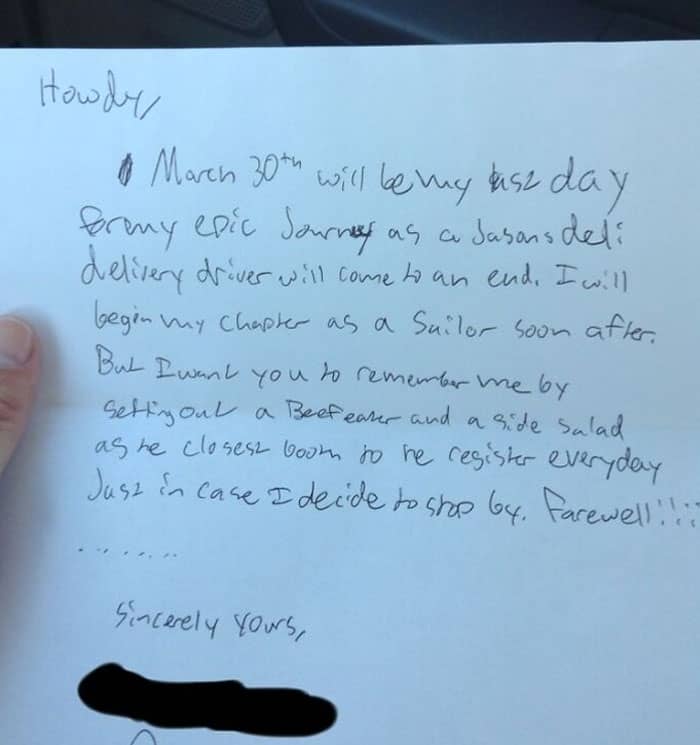 Howdy,
March 30th will be my last day
for my epic Journey as a Jasons deli
delivery driver will come to an end. I will
begin my chapter as a Sailor soon after.
But I want you to remember me by
setting out a Beefeater and a side salad
as the closest booth to the register everyday
Just in case I decide to stop by. Farewell!!!!
........
Sincerely yours,